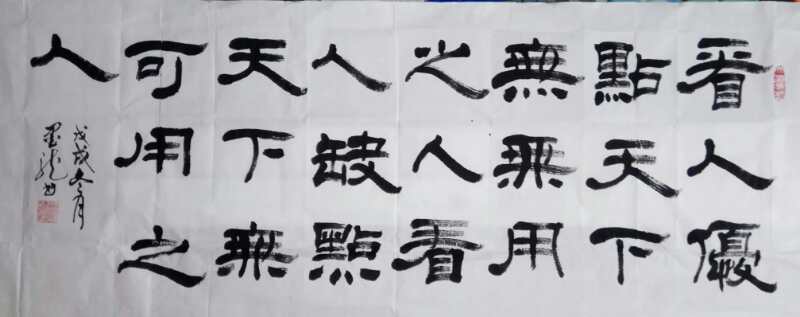 看人優
點天下
無無用
之人看
人缺點
天下無
可用之
人
戊戌冬月